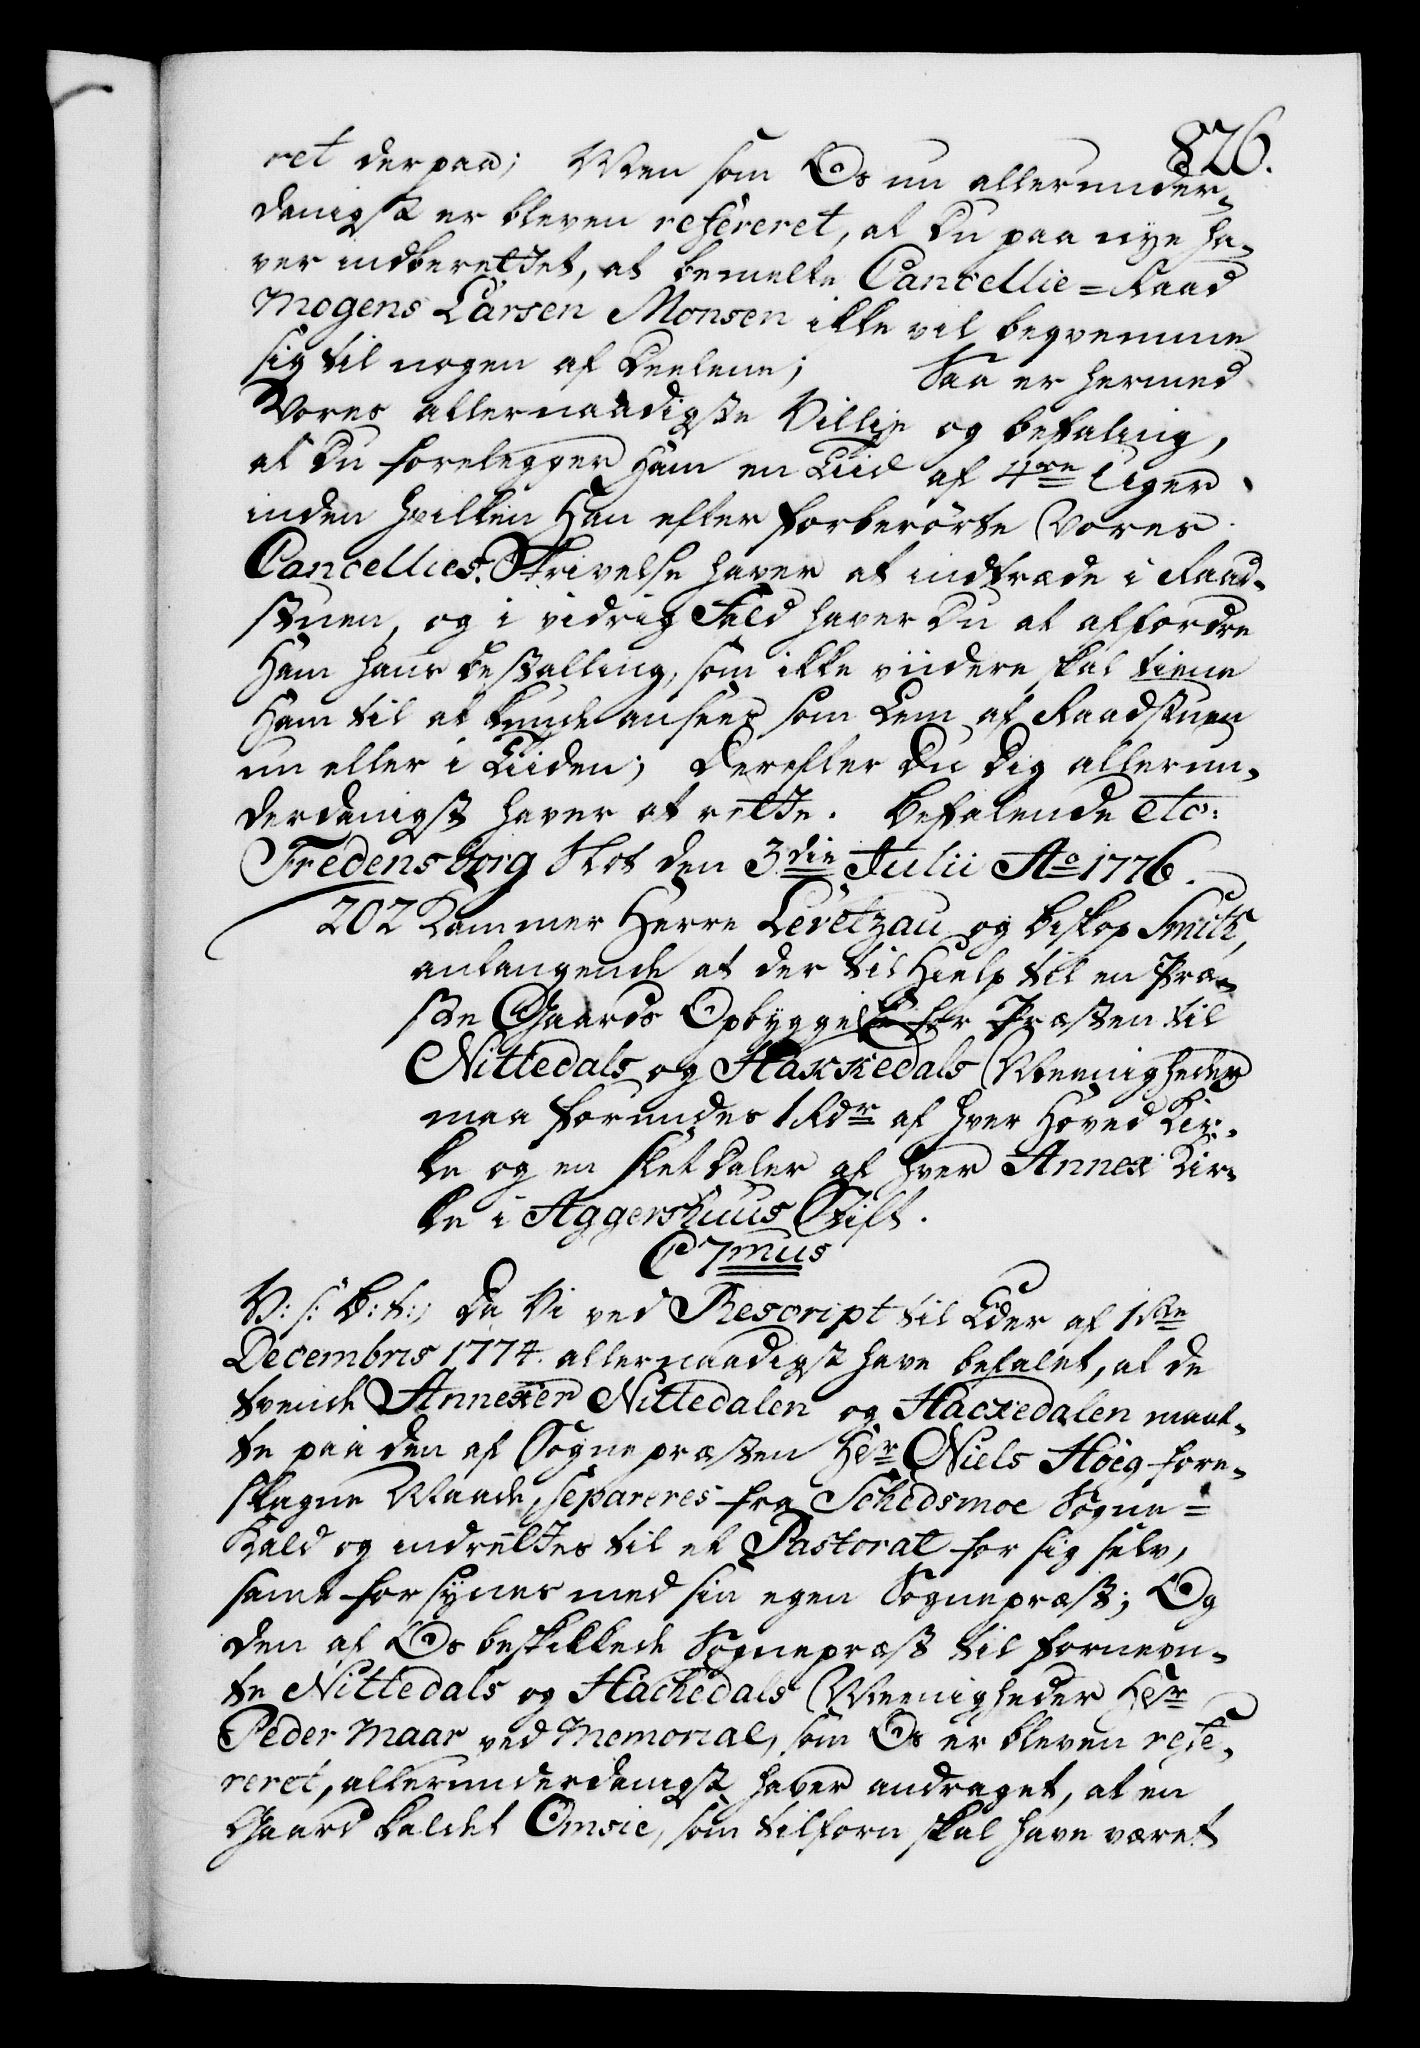 826.
ret derpaa; Men som Os nu allerunder-
danigst er bleven refereret, at Du paa nye ha-
ver indberettet, at bemelte Cancellie-Raad
Mogens Larsen Monsen ikke vil beqvemme
sig til nogen af Deelene; Saa er hermed
Vores allernaadigste Villie og befaling,
at Du forelegger Ham en Tiid af 4re Uger
inden hvilken Han efter forberørte Vores
Cancellies Skrivelse haver at indtræde i Raad-
stuen, og i vidrig Fald haver Du at affordre
Ham hans bestalling, som ikke viidere skal tiene
Ham til at kunde ansees som Lem af Raadstuen
nu eller i Tiiden; Derefter Du Dig allerun-
derdanigst haver at rette. Befalende etc:
Fredensborg Slot den 3die Julii Ao 1776.
202 Kammer Herre Levetzau og biskop Smith,
anlangende at der til Hielp til en Præ-
ste Gaards Opbyggelse for Præsten til
Nittedals og Hakkedals Meenigheder
maa forundes 1 Rdr af hver Hoved Kir-
ke og en Slet daler af hver Annex Kir-
ke i Aggershuus Stift.
C 7mus
V: s: B: t:; Da Vi ved Rescript til Eder af 1ste
Decembris 1774. allernaadigst have befalet, at de
tvende Annexer Nittedalen og Hackedalen maat-
te paa den af Sognepræsten Hr Niels Höeg fore-
slagne Maade, separeres fra Schedsmoe Sogne-
Kald og indrettes til et Pastorat for sig selv,
samt forsynes med sin egen Sognepræst; Og
den af Os beskikkede Sognepræst til fornevn-
te Nittedals og Hachedals Meenigheder Hr
Peder Maar ved Memorial, som Os er bleven refe-
reret, allerunderdanigst haver andraget, at en
Gaard kaldet Omsie, som tilforn skal have været